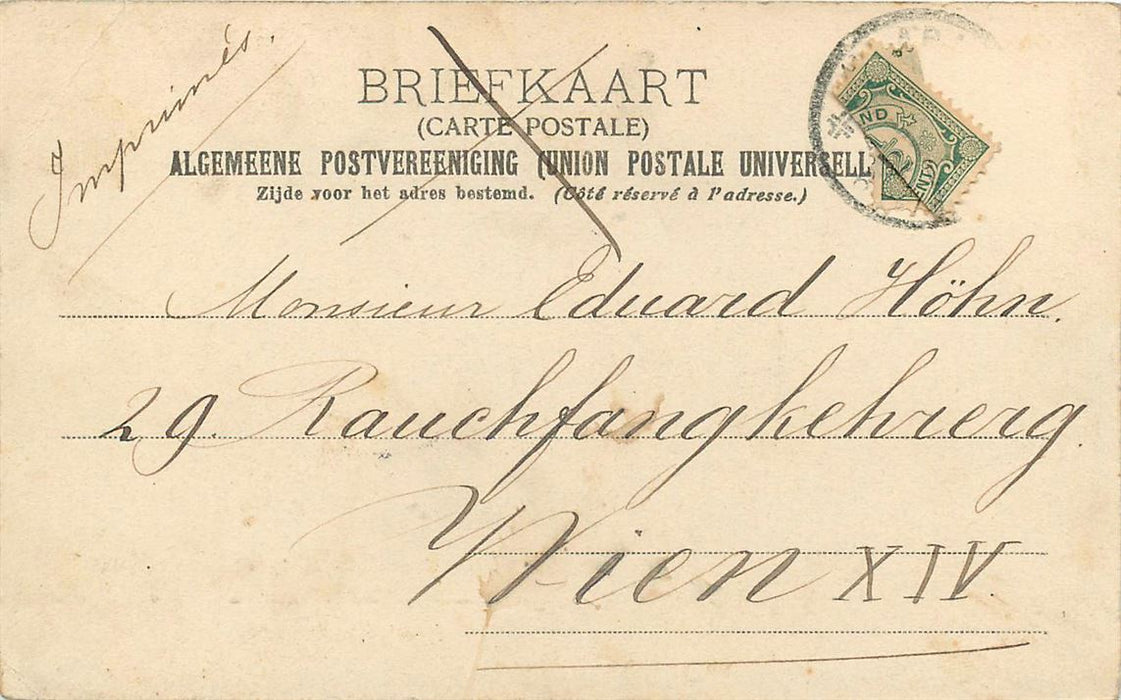 Imprimés.
BRIEFKAART
(CARTE POSTALE)
ALGEMEENE POSTVEREENIGING (UNION POSTALE UNIVERSELL
Zijde voor het adres bestemd. (Côté réservé à l'adresse.)
Monsieur Eduard Höhn.
29. Rauchfangkehrerg.
Wien XIV